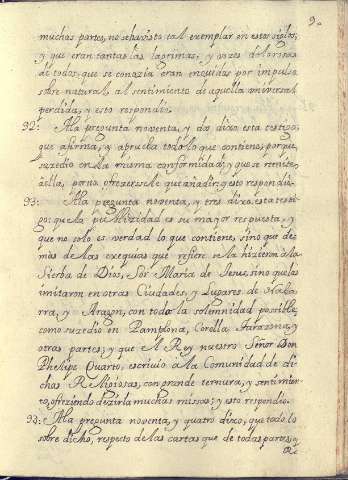 9.
muchas partes, no se ha visto tal exemplar en estos siglos,
y que eran tantas las lagrimas, y vozes dolorosas
de todos, que se conozia eran enquidas por impulso
sobre natural, al sentimiento de aquella universal
perdida, y esto respondio.
92: A la pregunta noventa, y dos dixo esta testigo,
que afirma, y aprueba todo lo que contiene, porque
suzedio en la misma conformidad; y que se remite
à ella, por no ofrezersele que añadir; y esto respondio.
93: A la pregunta noventa, y tres dixo esta testi-
go: que la publizidad es su mayor respuesta, y
que no solo es verdad lo que contiene, sino que de-
mas de las exequias que refiere se la hizieron a la
Sierba de Dios, Sor Maria de Jesus, sino que las
imitaron en otras Ciudades, y Lugares de Naba-
rra, y Aragon, con toda la solemnidad possible,
como suzedio en Pamplona, Corella Tarazona, y
otras partes; y que el Rey nuestro Señor Don
Phelipe Quarto, escrivio à la Comunidad de di-
chas Religiosas, con grande ternura, y sentimien-
to, ofreziendo dezirla muchas missas; y esto respondio.
94: A la pregunta noventa, y quatro dixo, que todo lo
sobre dicho, respecto de las cartas que de todas partes, y